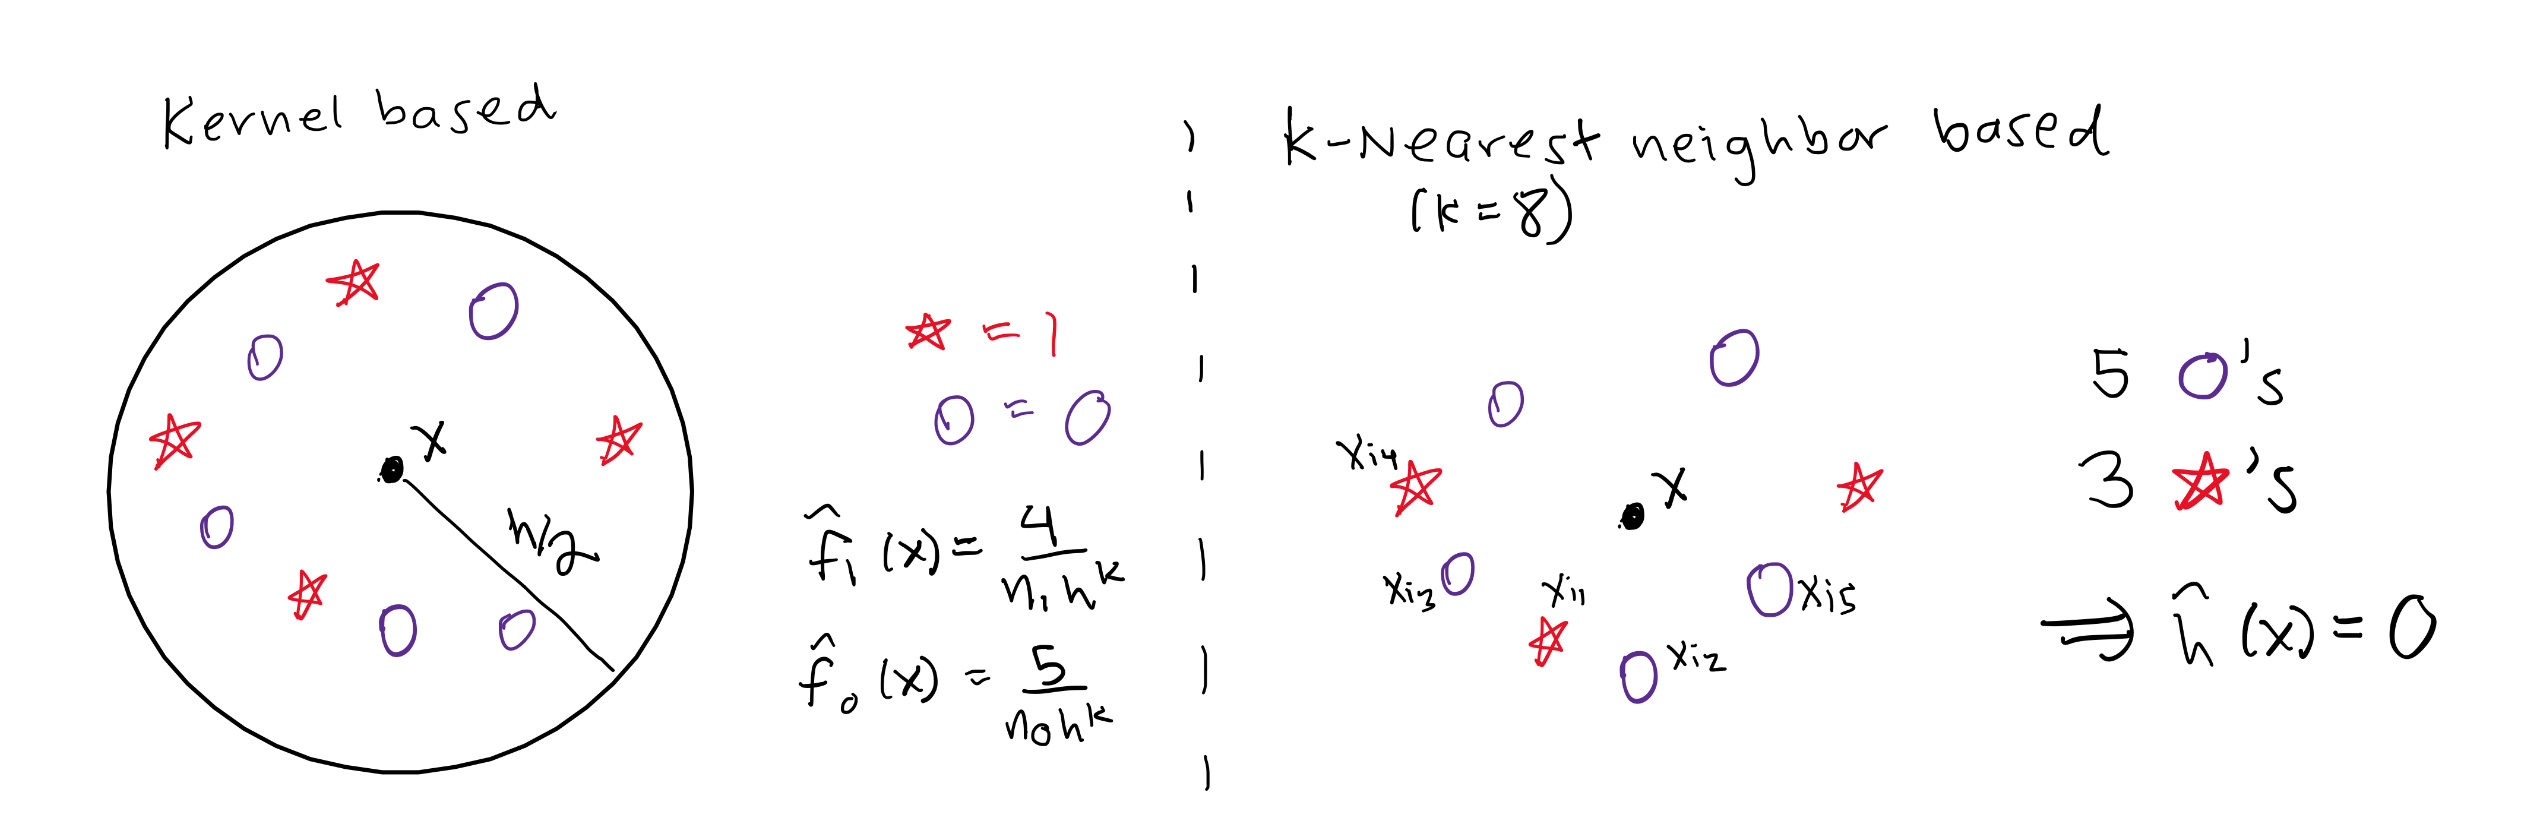 Kernel based
x
h/2
☆ = 1
0 = 0
f̂₁(x) = 4/(n₁h^k)
f̂₀(x) = 5/(n₀h^k)
k-Nearest neighbor based
(k=8)
x
xi4
xi3
xi1
xi2
xi5
5 0's
3 ☆'s
⇒ ĥ(x) = 0